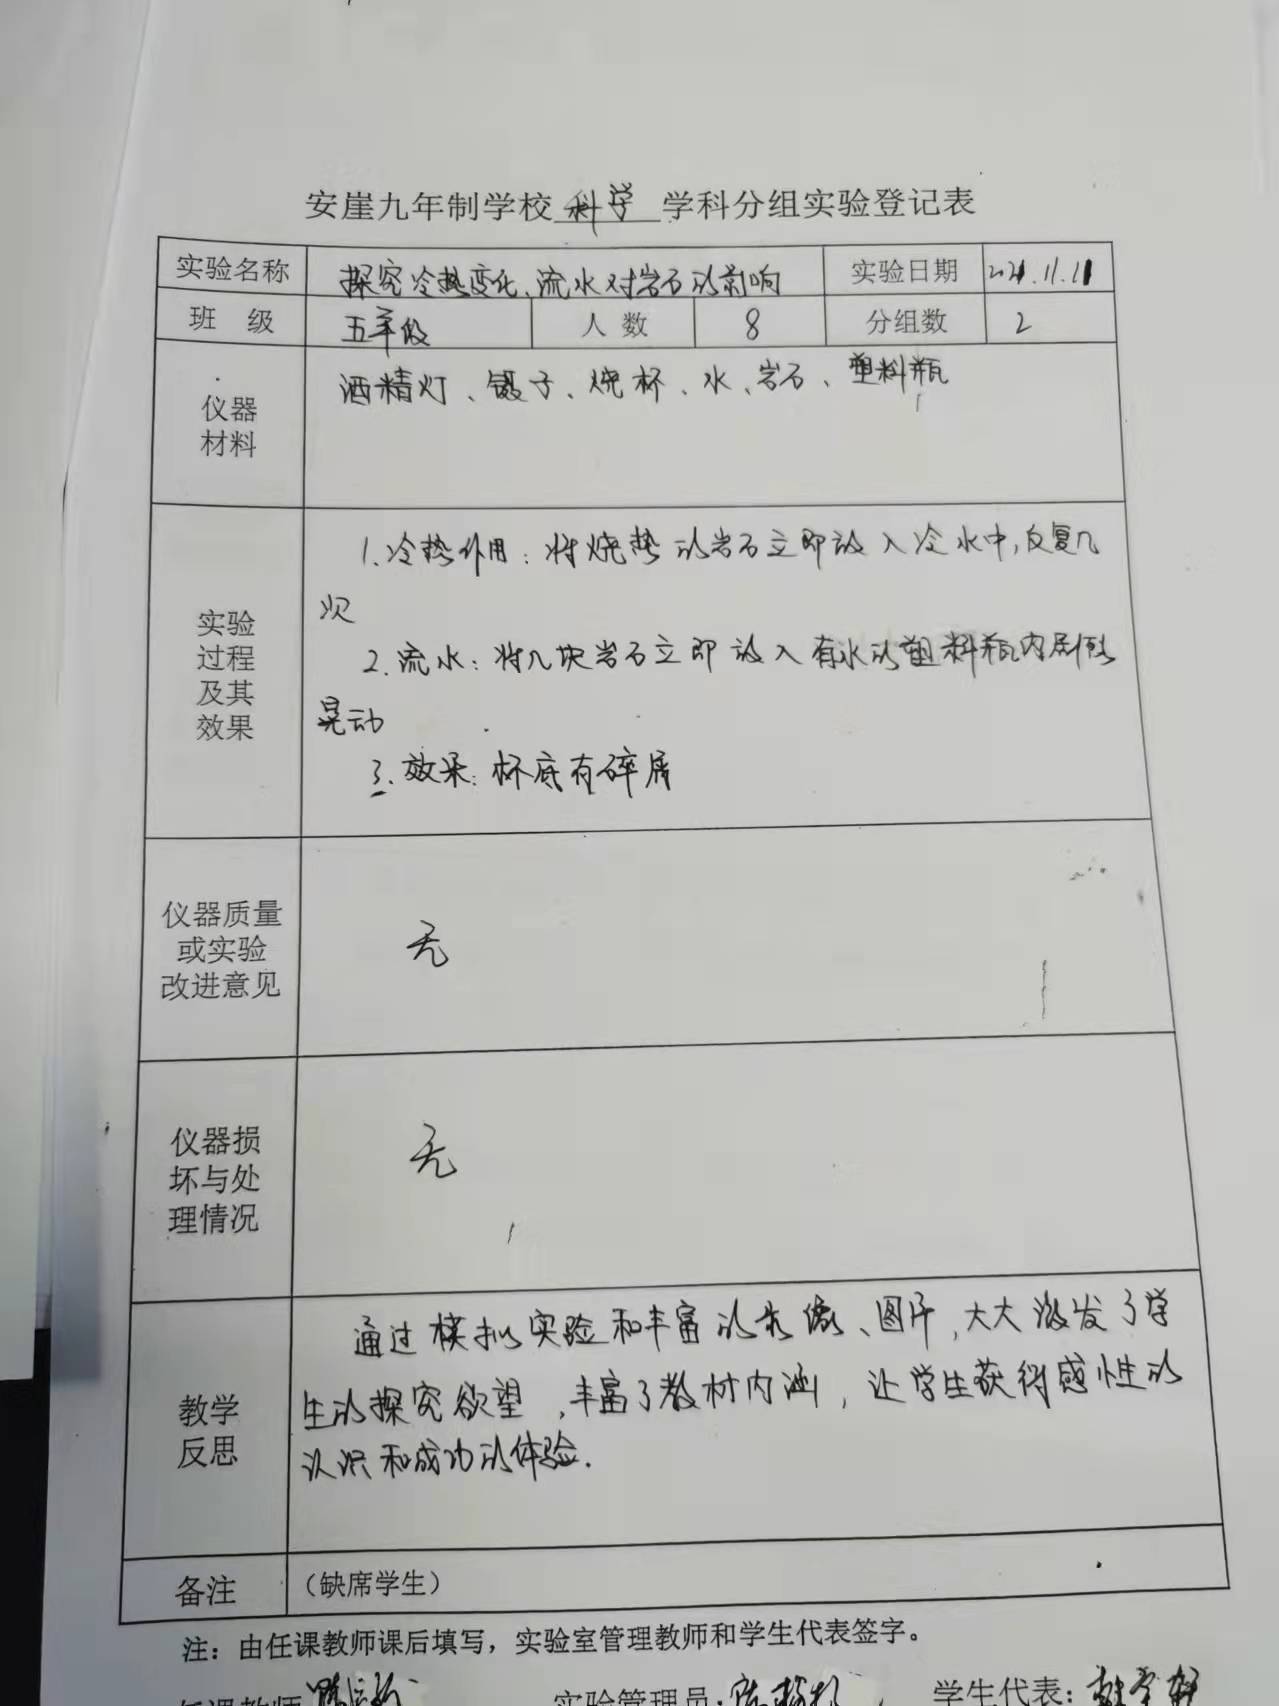 安崖九年制学校 科学 学科分组实验登记表
实验名称 探究冷热变化、流水对岩石的影响 实验日期 2021.11.11
班 级 五年级 人数 8 分组数 2
仪器
材料
酒精灯、镊子、烧杯、水、岩石、塑料瓶
实验
过程
及其
效果
1.冷热作用：将烧热的岩石立即放入冷水中,反复几
次
2.流水：将几块岩石立即放入有水的塑料瓶内
晃动
3.效果：杯底有碎屑
仪器质量
或实验
改进意见
无
仪器损
坏与处
理情况
无
教学
反思
通过模拟实验和丰富的录像、图片,大大激发了学
生的探究欲望,丰富了教材内涵,让学生获得感性的
认识和成功的体验.
备注 （缺席学生）
注：由任课教师课后填写，实验室管理教师和学生代表签字。
任课教师 实验管理员： 学生代表：